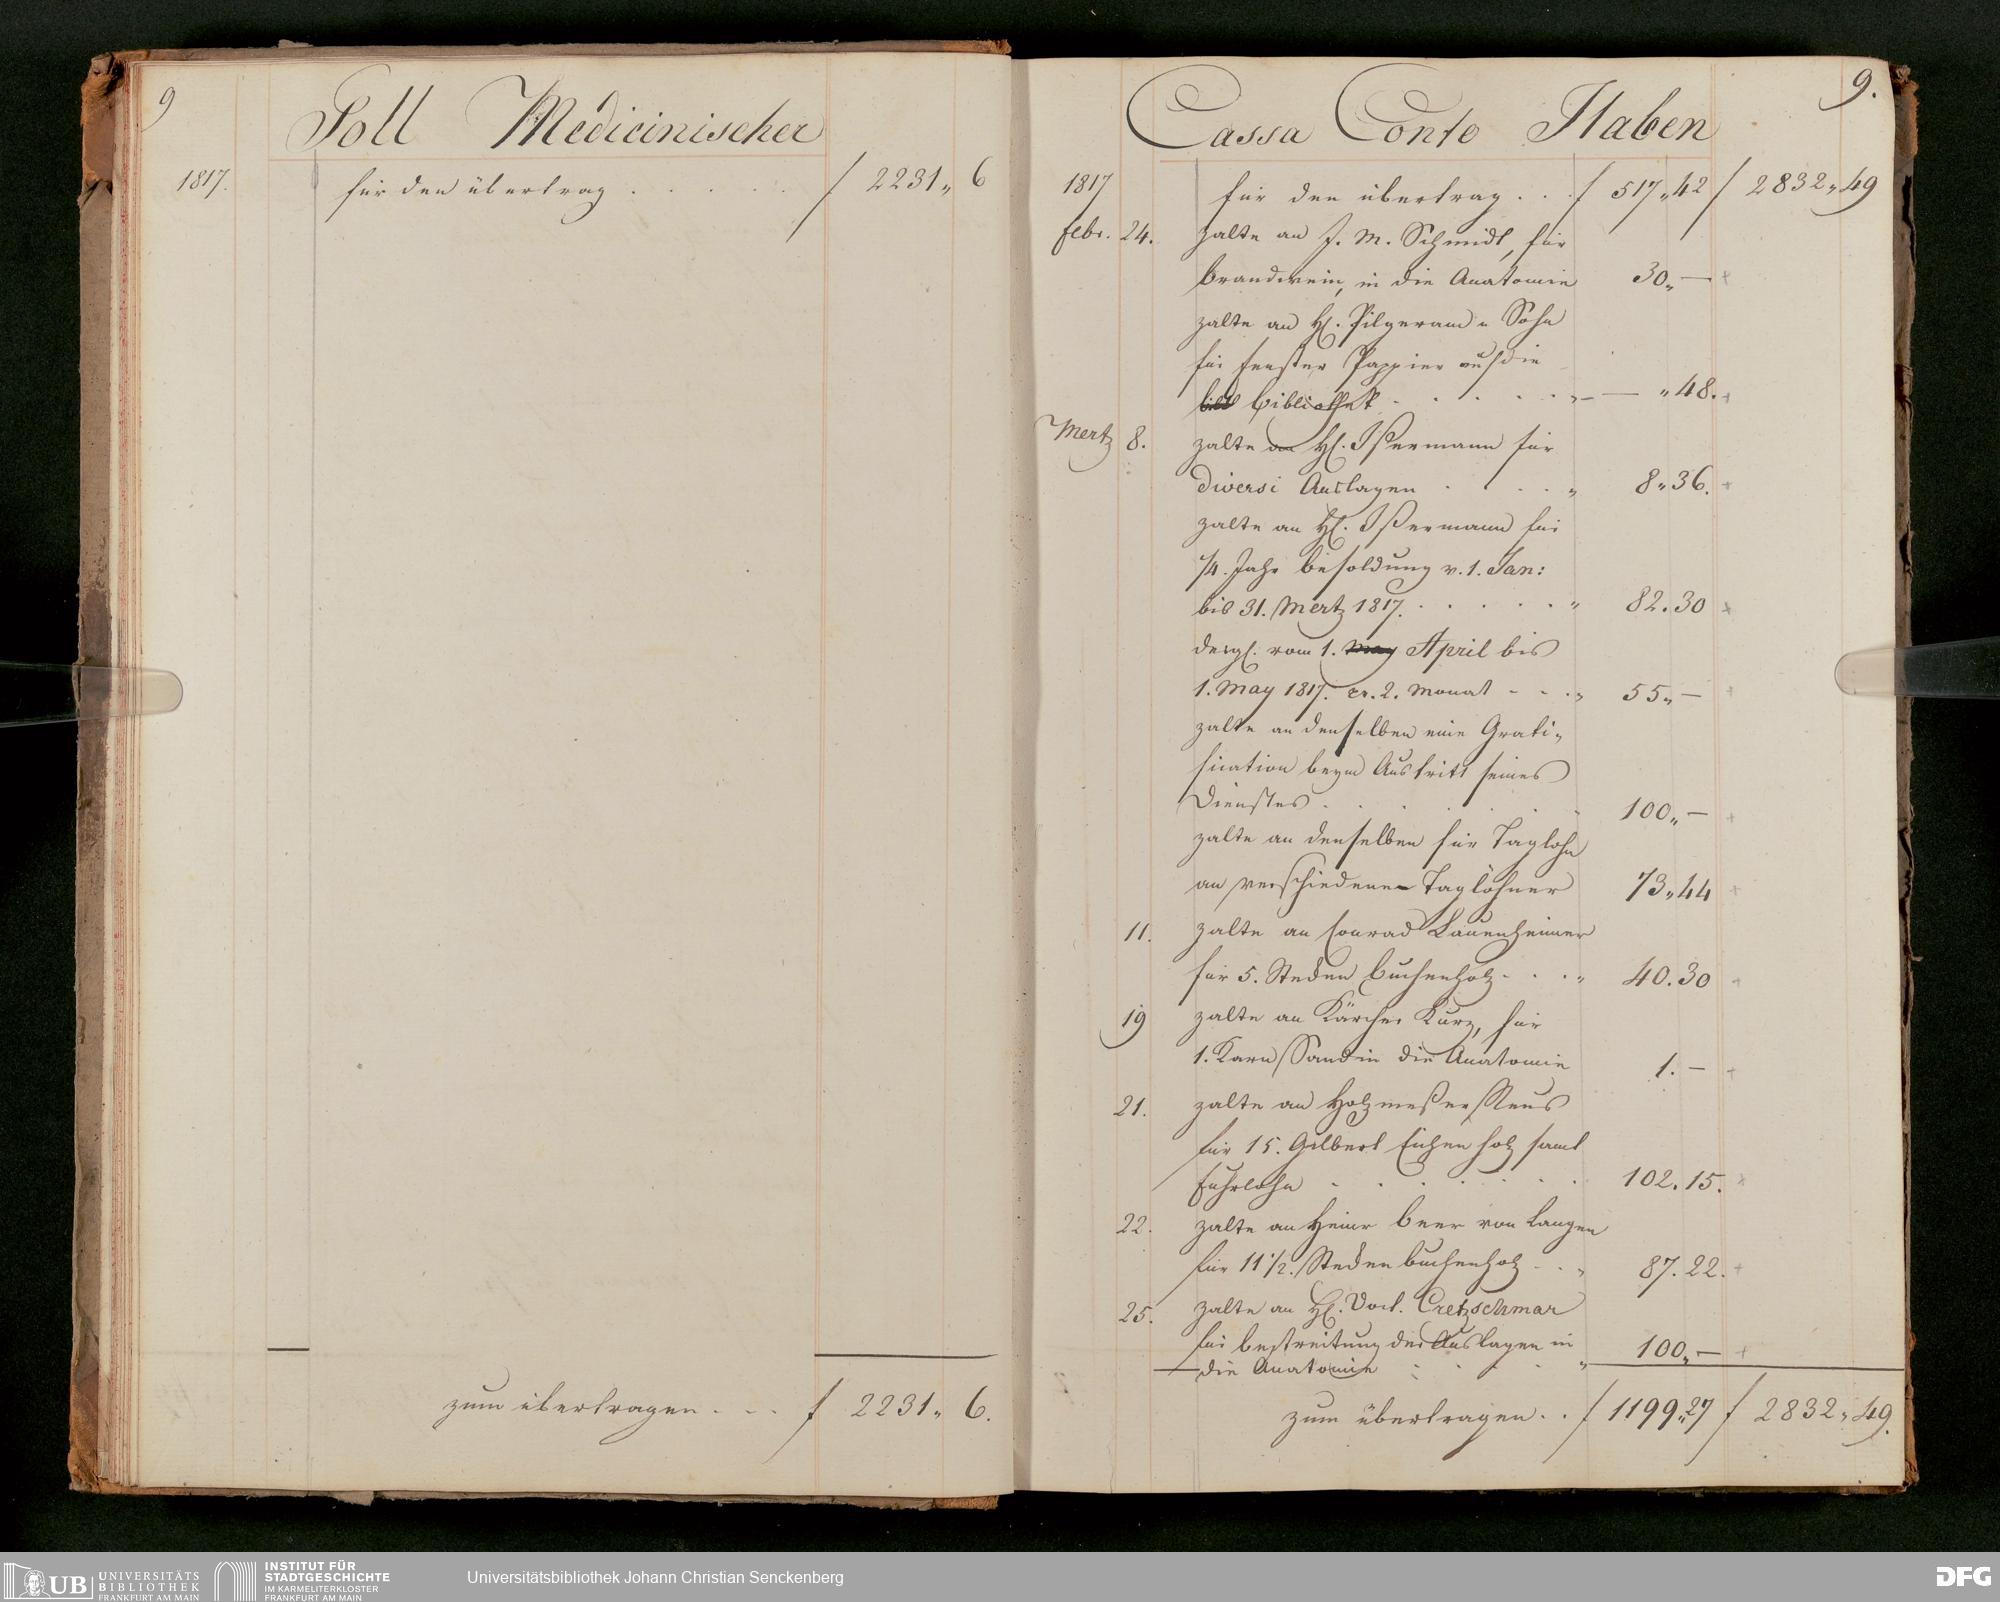 9
Soll Medicinischer
1817. für den übertrag . . . . . f 2231 „ 6
zum übertragen . . . f 2231 „ 6.
9.
Cassa Conto Haben
1817 für den übertrag . . f 517 „ 42 f 2832 „ 49
febr. 24. zalte an J. M. Schmidt, für
brandwein, in die Anatomie 30 „ —
zalte an H. Pilgeram u Sohn
für fenster Pappier auf die
bibliothek . . . . . „ — „ 48.
Mertz 8. zalte an H. Ißermann für
diversi Auslagen . . . „ 8 „ 36.
zalte an H. Ißermann für
1/4. Jahr besoldung v. 1. Jan:
bis 31. Mertz 1817. . . . . . „ 82. 30
desgl. vom 1. may April bis
1. May 1817. 2. Monat - - . „ 55 „ —
zalte an denselben eine Grati-
fication beym Austritt seines
Dienstes . . . . . . 100 „ —
zalte an denselben für Taglohn
an verschiedene Taglöhner 73 „ 44
11. zalte an Conrad Lauenheimer
für 5. Steden buchenholz . . . „ 40. 30
19 zalte an Kärcher Kurz, für
1. Karn Sand in die Anatomie 1. —
21. zalte an Holzmeßer
für 15. Gilbert Eichen holz samt
fuhrlohn . . . . . . 102. 15.
22. zalte an Heinr beer von Langen
für 11 1/2. Steden buchenholz - . „ 87. 22.
25. zalte an H. Doct. Cretzschmar
für bestreitung der Auslagen in 100 „ —
die Anatomie . . . . „
zum übertragen . . f 1199 „ 27 f 2832 „ 49.
UB UNIVERSITÄTS
BIBLIOTHEK
FRANKFURT AM MAIN
INSTITUT FÜR
STADTGESCHICHTE
IM KARMELITERKLOSTER
FRANKFURT AM MAIN
Universitätsbibliothek Johann Christian Senckenberg
DFG